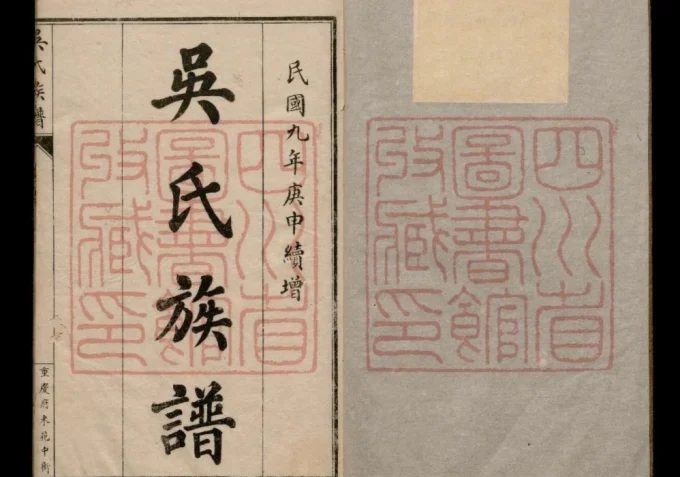 四川省
圖書館
收藏印
民國九年庚申續增
吳氏族譜
四川省
圖書館
收藏印
吳氏族譜
重慶府米花中街